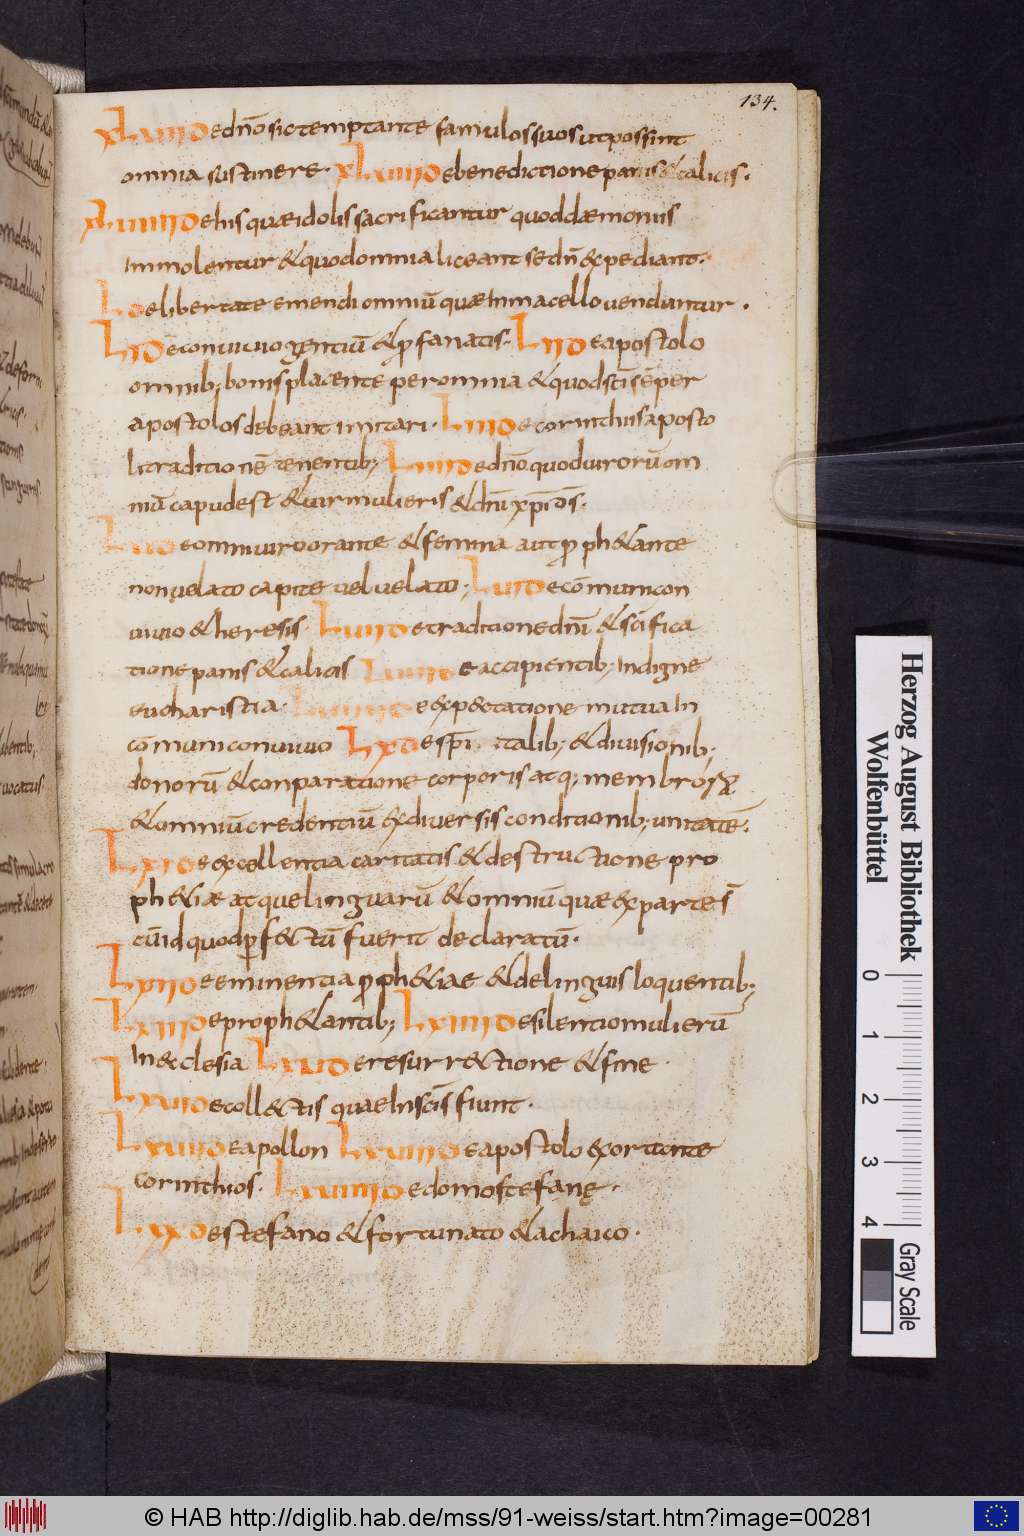 134.
XLVII De dn̄o sic temptante famulos suos ut possint
omnia sustinere· XLVIII De benedictione panis & calicis·
XLVIIII De his quae idolis sacrificantur quod daemoniis
Immolentur & quod omnia liceant sed n̄ expediant·
L De libertate emendi omniū quae In macello venduntur·
LI De convivio gentiū & profanatis· LII De apostolo
omnib; bonis placente per omnia & quod sc̄i sēper
apostolos debeant imitari· LIII De corinthiis aposto
li traditionē tenentib; LIIII De dn̄o quod virorū om
niū capud est & vir mulieris & dn̄i xp̄i d̄s·
LV De omni viro orante & femina aut proph&ante
non velato capite vel velato; LVI De cōmuni con
vivio & heresis LVII De traditione dn̄i & sc̄ifica
tione panis & calicis LVIII De accipientib; Indigne
eucharistia· LVIIII De exp&tatione mutua In
cōmuni convivio LX De sp̄italib; & divisionib;
donorū & conparatione corporis atq; membrorum
& omniū credentiū ex diversis conditionib; unitatē·
LXI De excellentia caritatis & destructione pro
ph&iae atque linguarū & omniū quae ex parte s̄
cū id quod perfectū fuerit declaratū·
LXII De eminentia proph&iae & de linguis loquentib;
LXIII De proph&antib; LXIIII De silentio mulierū
In ecclesia LXV De resurr&tione & fine·
LXVI De coll&tis quae In sc̄is fiunt·
LXVII De apollon LXVIII De apostolo exortante
corinthios· LXVIIII De domo stefanę·
LXX De stefano & fortunato & achaico·
Herzog August Bibliothek
Wolfenbüttel
0 1 2 3 4
Gray Scale
© HAB http://diglib.hab.de/mss/91-weiss/start.htm?image=00281